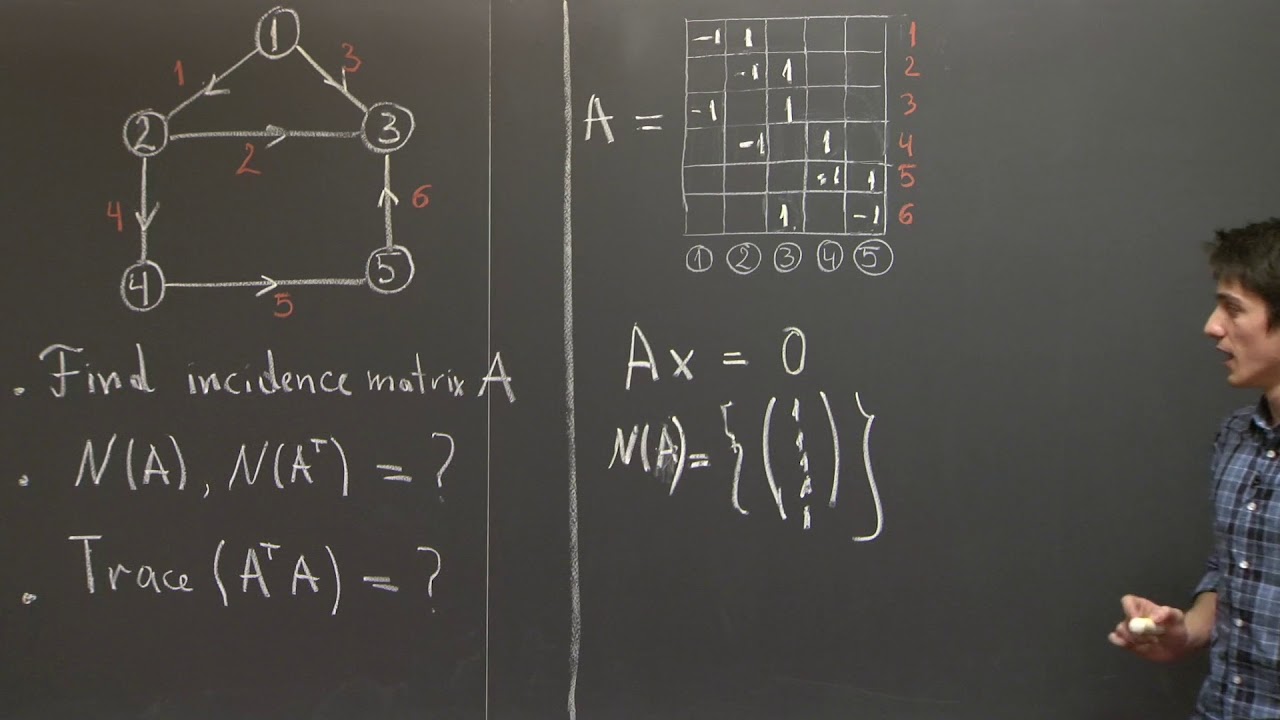 1
1 3
2 3
2
4 6
4 5
5
. Find incidence matrix A
. N(A), N(Aᵀ) = ?
. Trace (AᵀA) = ?
A =
-1 1 1
-1 1 2
-1 1 3
-1 1 4
-1 1 5
1 -1 6
1 2 3 4 5
Ax = 0
N(A) = { ( 1
1
1
1
1 ) }